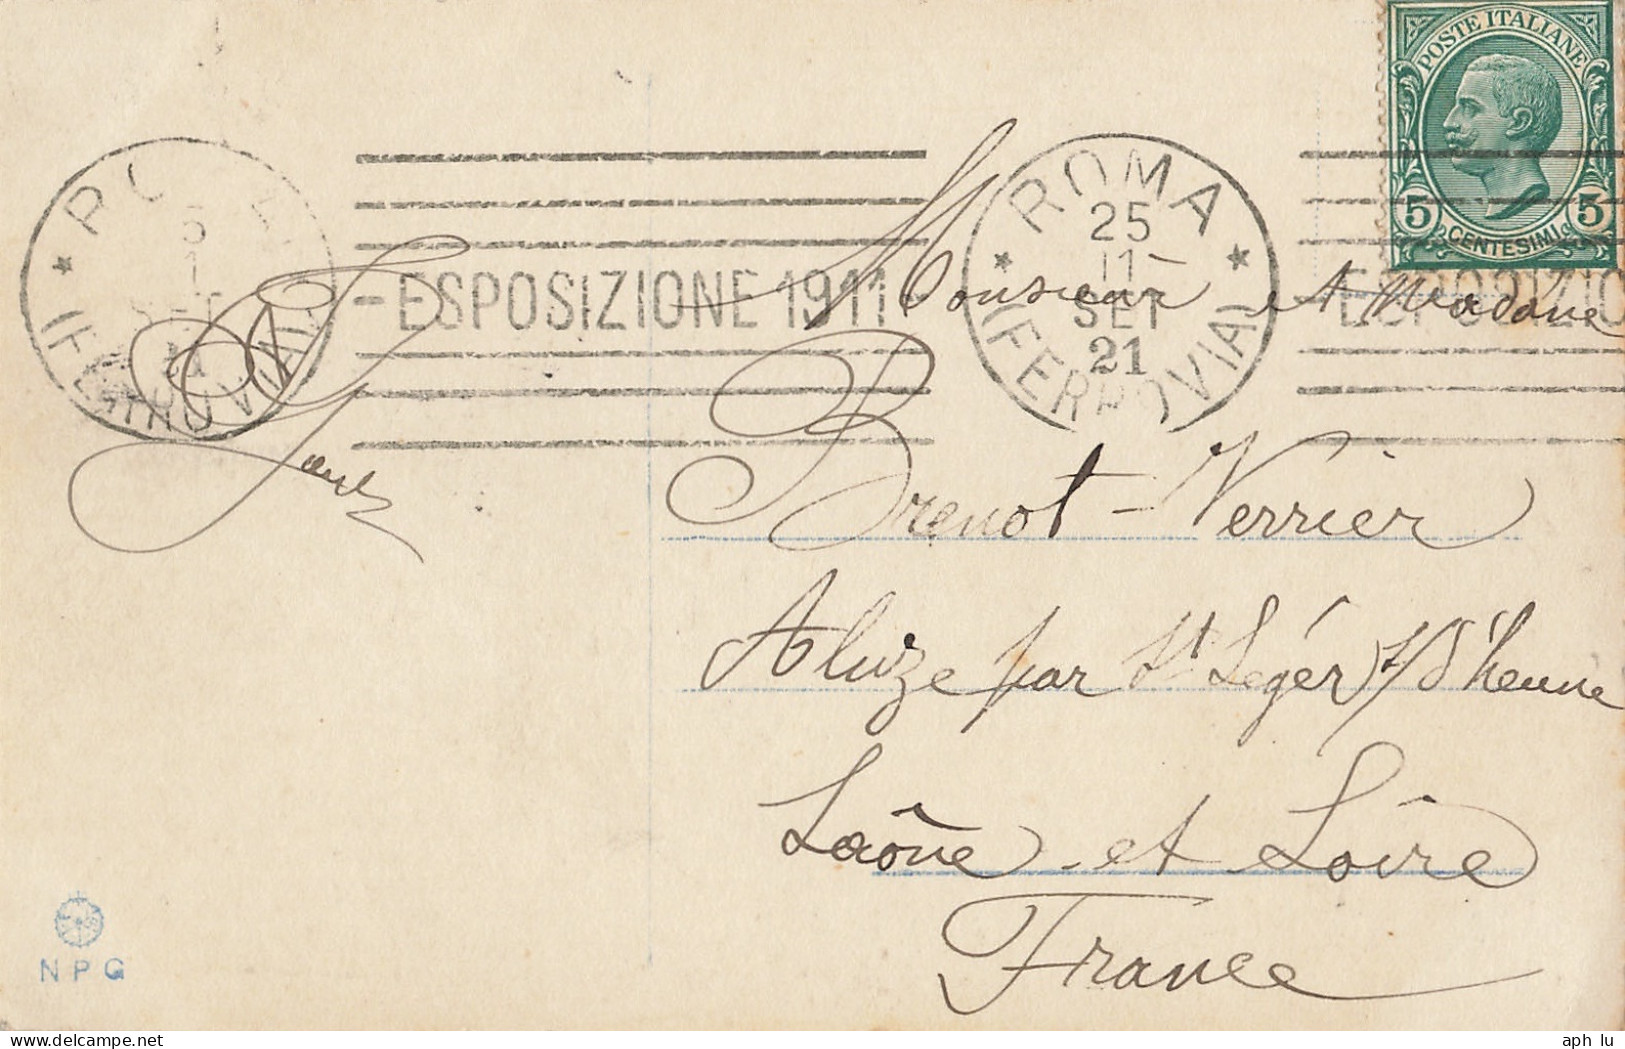 POSTE ITALIANE
5 CENTESIMI 5
ROMA
25
11-
SET
21
(FERROVIA)
-ESPOSIZIONE 1911-
ESPOSIZIO
Monsieur et Madame
Brenot-Verrier
Aluze par St Légér s/d'heune
Saône-et Loire
France
NPG
aph_lu